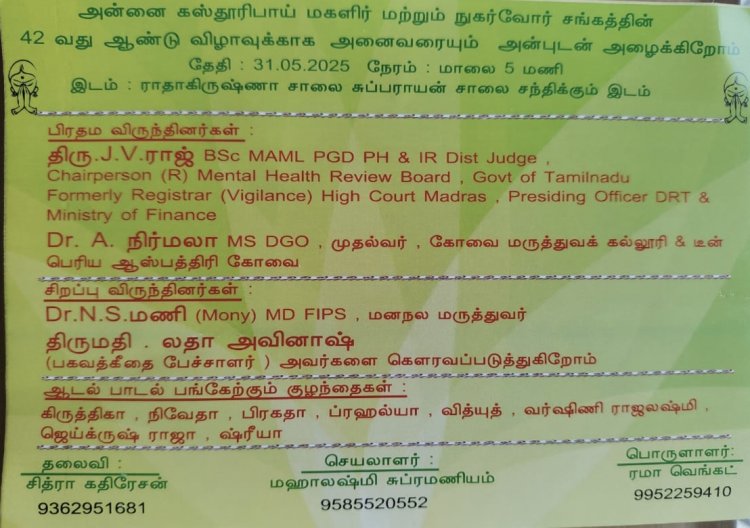 அன்னை கஸ்தூரிபாய் மகளிர் மற்றும் நுகர்வோர் சங்கத்தின்
42 வது ஆண்டு விழாவுக்காக அனைவரையும் அன்புடன் அழைக்கிறோம்
தேதி : 31.05.2025 நேரம் : மாலை 5 மணி
இடம் : ராதாகிருஷ்ணா சாலை சுப்பராயன் சாலை சந்திக்கும் இடம்
பிரதம விருந்தினர்கள் :
திரு.J.V.ராஜ் BSc MAML PGD PH & IR Dist Judge ,
Chairperson (R) Mental Health Review Board , Govt of Tamilnadu
Formerly Registrar (Vigilance) High Court Madras , Presiding Officer DRT &
Ministry of Finance
Dr. A. நிர்மலா MS DGO , முதல்வர் , கோவை மருத்துவக் கல்லூரி & டீன்
பெரிய ஆஸ்பத்திரி கோவை
சிறப்பு விருந்தினர்கள் :
Dr.N.S.மணி (Mony) MD FIPS , மனநல மருத்துவர்
திருமதி . லதா அவினாஷ்
(பகவத்கீதை பேச்சாளர் ) அவர்களை கௌரவப்படுத்துகிறோம்
ஆடல் பாடல் பங்கேற்கும் குழந்தைகள் :
கிருத்திகா , நிவேதா , பிரகதா , ப்ரஹல்யா , வித்யுத் , வர்ஷிணி ராஜலஷ்மி ,
ஜெய்க்ருஷ் ராஜா , ஷ்ரீயா
தலைவி :
சித்ரா கதிரேசன்
9362951681
செயலாளர் :
மஹாலஷ்மி சுப்ரமணியம்
9585520552
பொருளாளர்:
ரமா வெங்கட்
9952259410